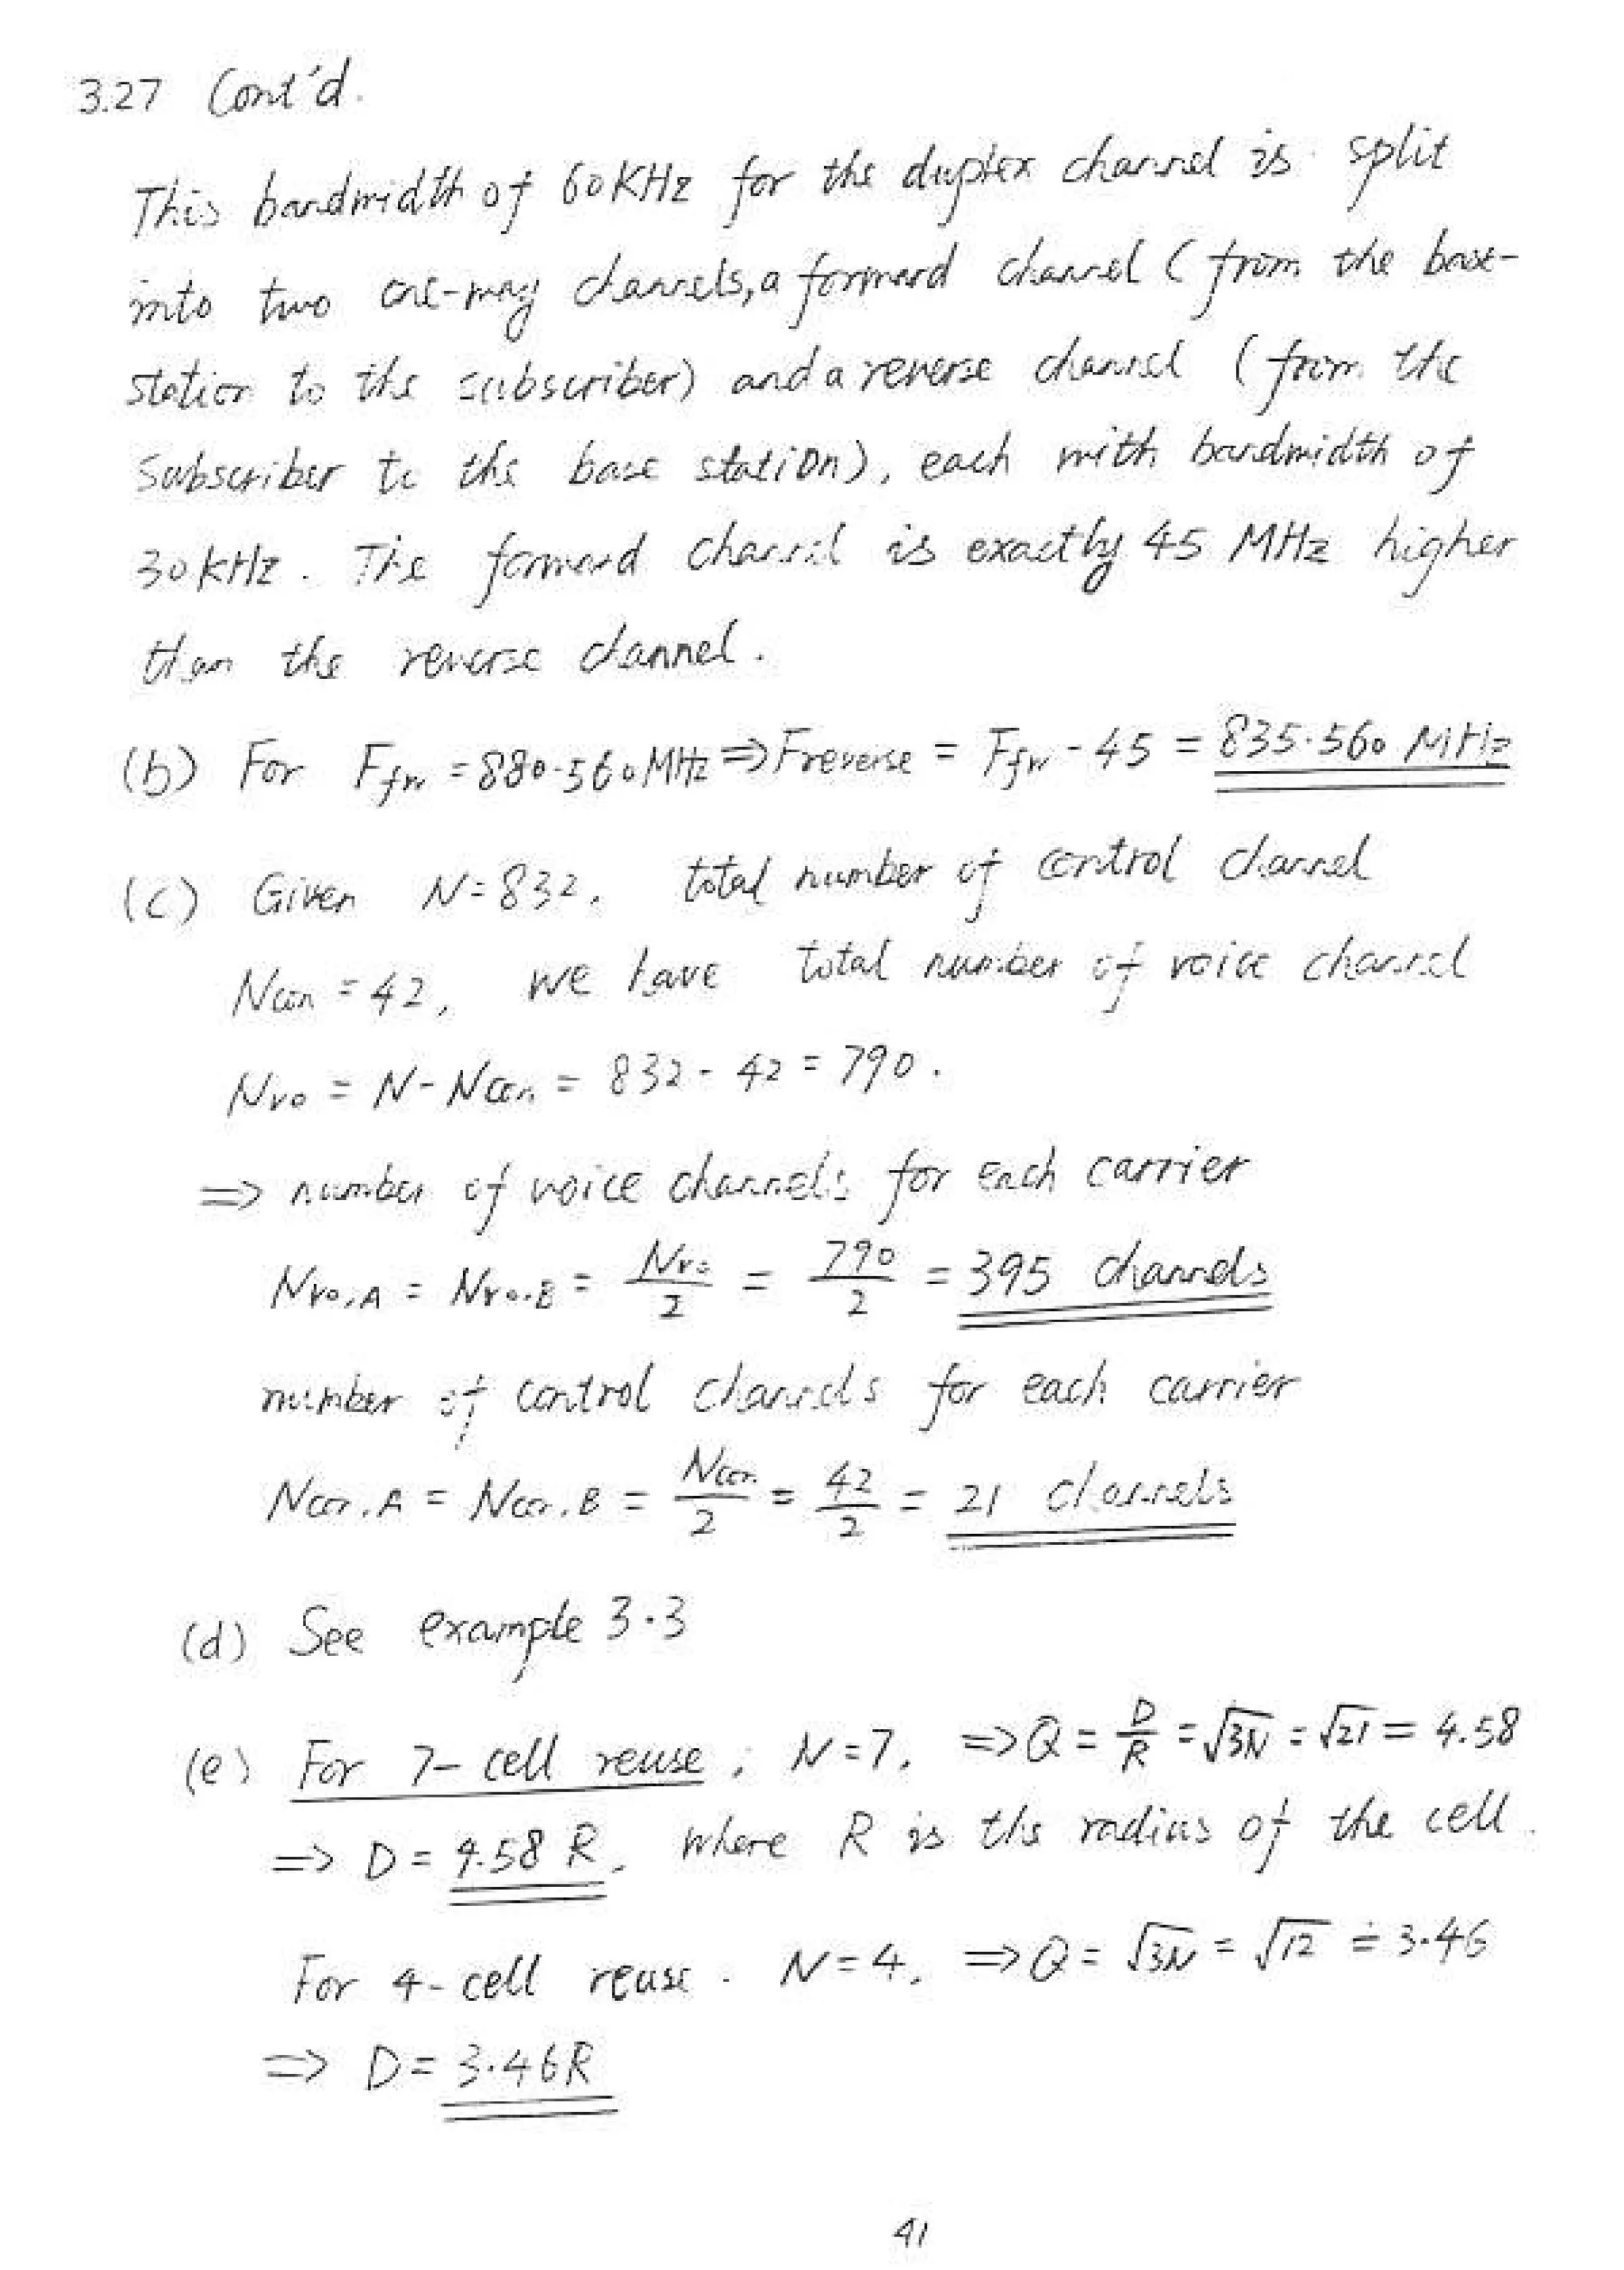 3.27 Cont'd.
This bandwidth of 60KHz for the duplex channel is split
into two one-way channels, a forward channel (from the base-
station to the subscriber) and a reverse channel (from the
Subscriber to the base station), each with bandwidth of
30kHz. The forward channel is exactly 45 MHz higher
than the reverse channel.
(b) For F_fw = 880.560MHz ⇒ F_reverse = F_fw - 45 = 835.560 MHz
(c) Given N=832, total number of control channel
N_con = 42, we have total number of voice channel
N_vo = N - N_con = 832 - 42 = 790.
⇒ number of voice channels for each carrier
N_vo,A = N_vo,B = N_vo/2 = 790/2 = 395 channels
number of control channels for each carrier
N_con,A = N_con,B = N_con/2 = 42/2 = 21 channels
(d) See example 3.3
(e) For 7-cell reuse, N=7, ⇒ Q = D/R = √3N = √21 = 4.58
⇒ D = 4.58 R, where R is the radius of the cell.
For 4-cell reuse. N=4, ⇒ Q = √3N = √12 ≐ 3.46
⇒ D = 3.46R
41